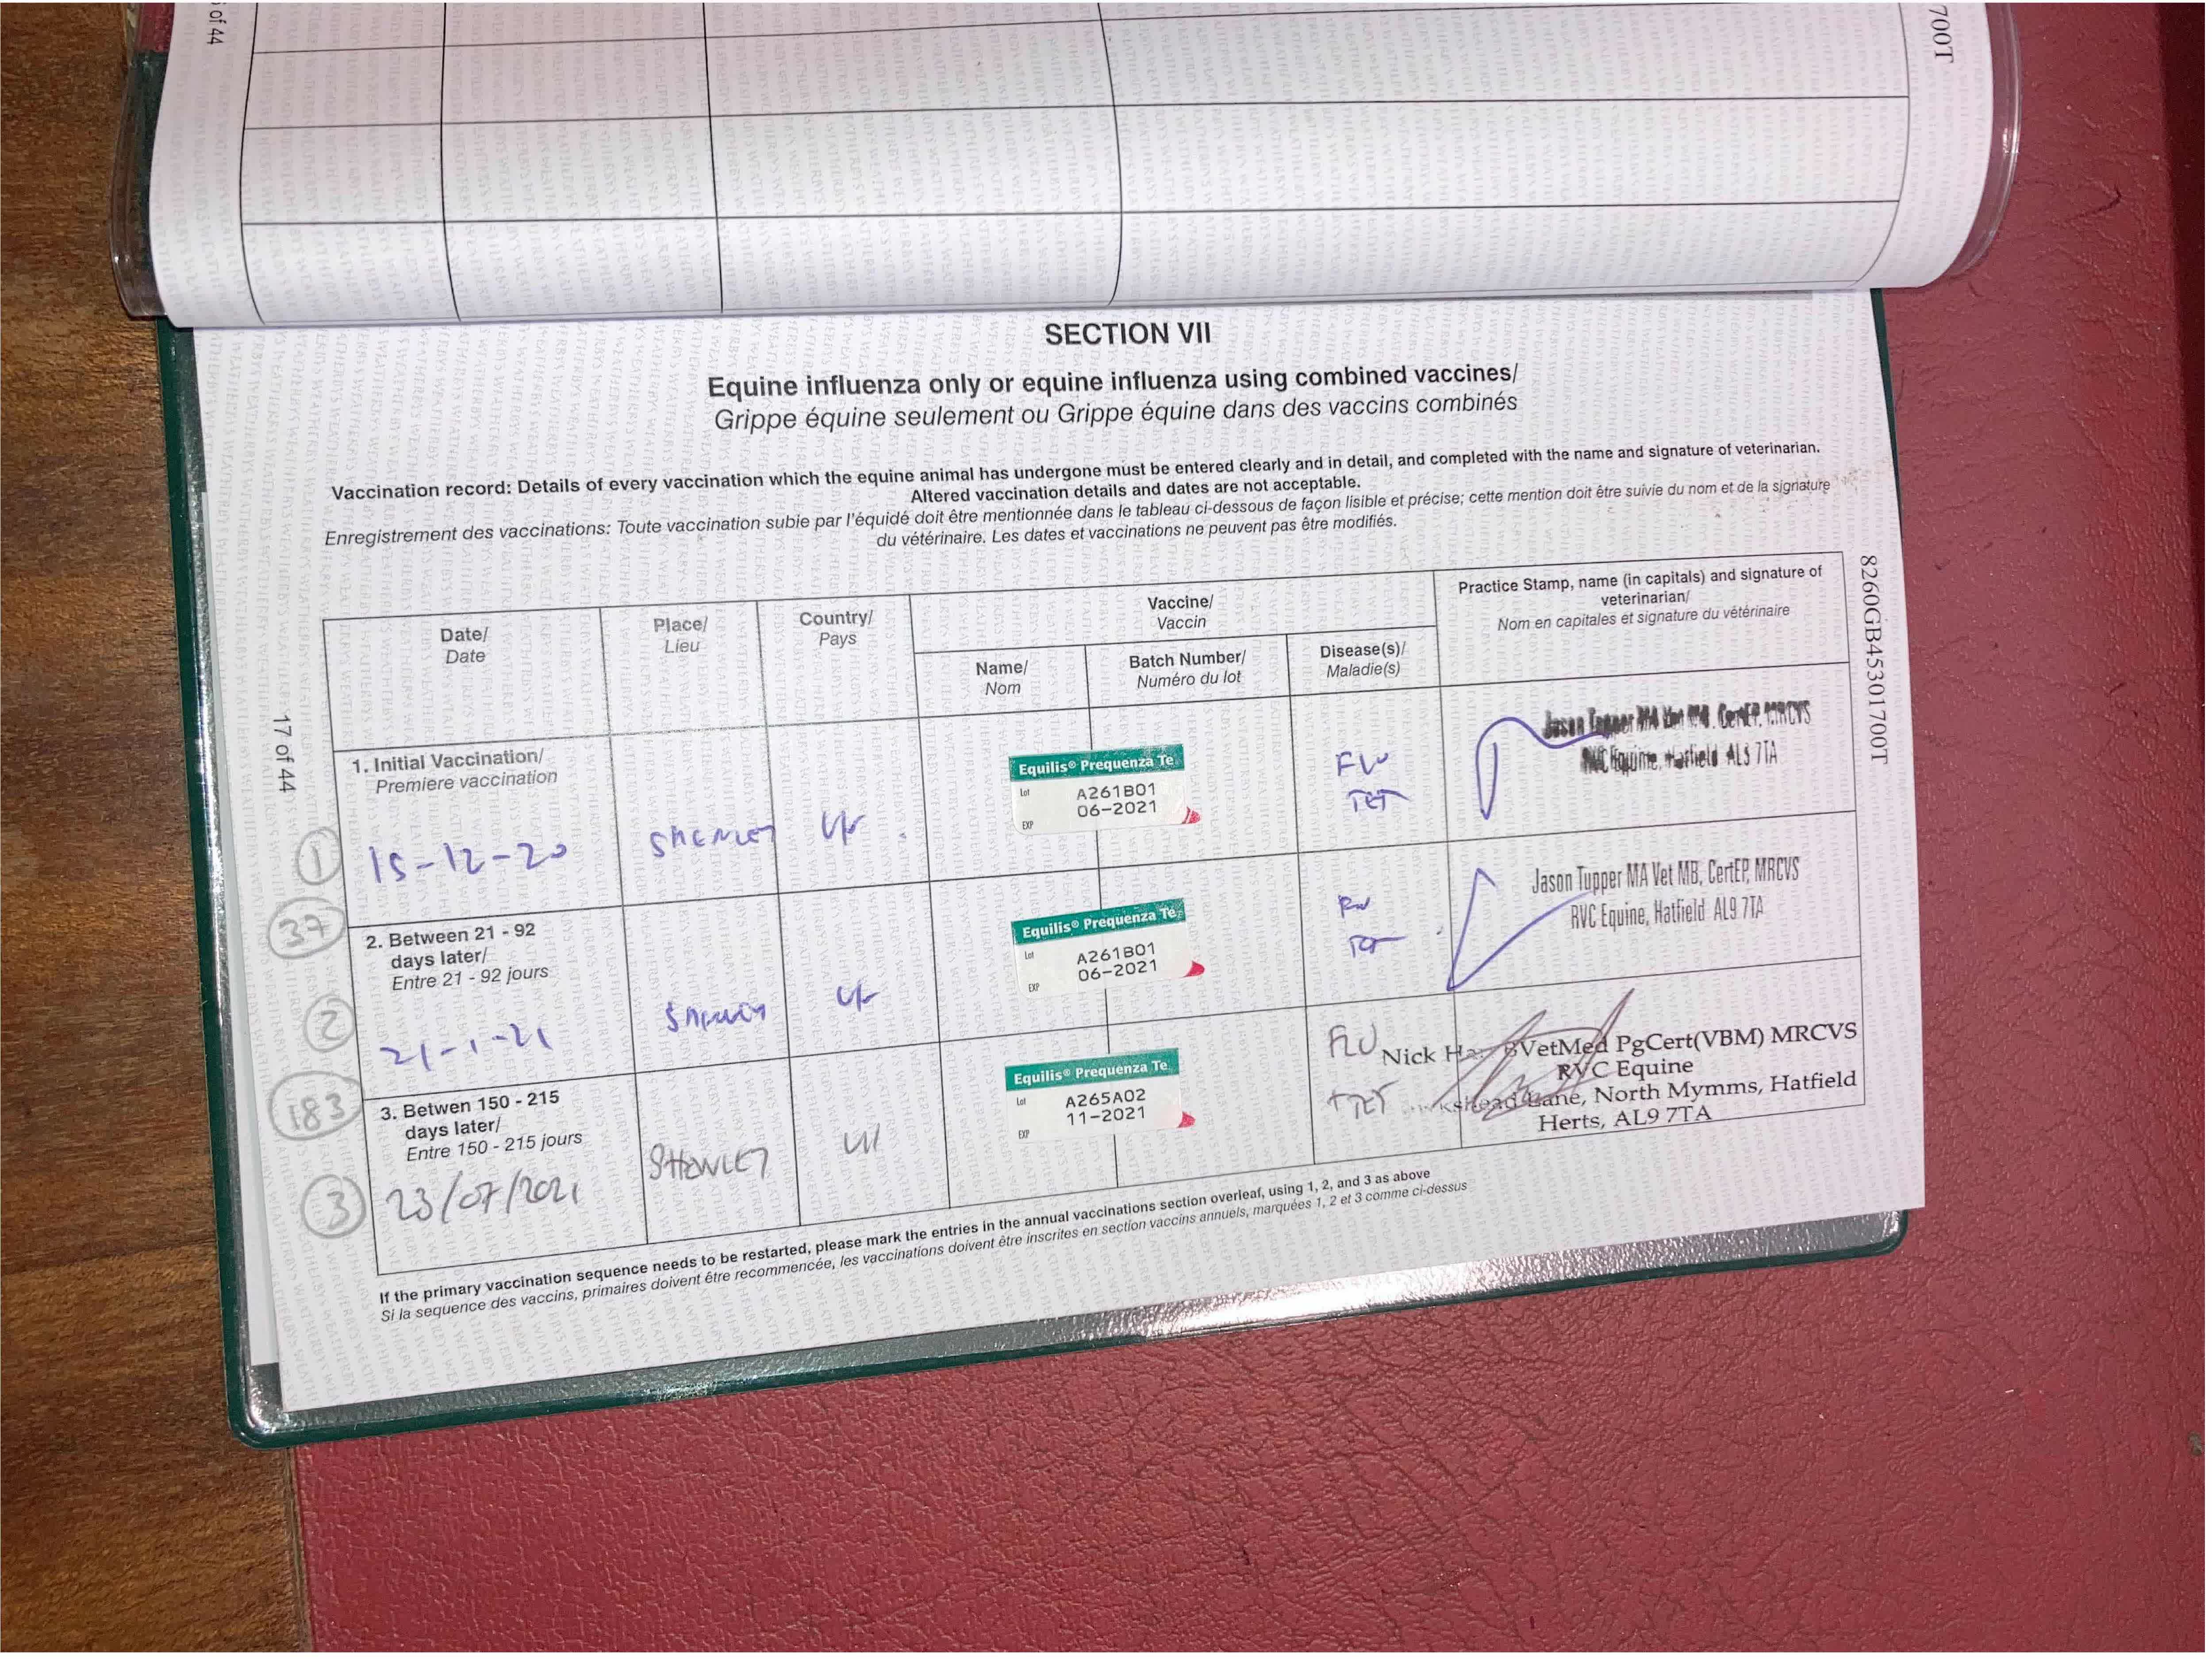 of 44
700T
SECTION VII
Equine influenza only or equine influenza using combined vaccines/
Grippe équine seulement ou Grippe équine dans des vaccins combinés
Vaccination record: Details of every vaccination which the equine animal has undergone must be entered clearly and in detail, and completed with the name and signature of veterinarian.
Altered vaccination details and dates are not acceptable.
Enregistrement des vaccinations: Toute vaccination subie par l'équidé doit être mentionnée dans le tableau ci-dessous de façon lisible et précise; cette mention doit être suivie du nom et de la signature
du vétérinaire. Les dates et vaccinations ne peuvent pas être modifiés.
Date/
Date
Place/
Lieu
Country/
Pays
Vaccine/
Vaccin
Name/
Nom
Batch Number/
Numéro du lot
Disease(s)/
Maladie(s)
Practice Stamp, name (in capitals) and signature of
veterinarian/
Nom en capitales et signature du vétérinaire
8260GB45301700T
17 of 44
1. Initial Vaccination/
Premiere vaccination
1
15-12-20
SHENLEY
UK
Equilis® Prequenza Te
Lot A261B01
06-2021
EXP
FLU
TET
Jason Tupper MA Vet MB, CertEP, MRCVS
RVC Equine, Hatfield AL9 7TA
37
2. Between 21 - 92
days later/
Entre 21 - 92 jours
2
21-1-21
SHENLEY
UK
Equilis® Prequenza Te
Lot A261B01
06-2021
EXP
FLU
TET
Jason Tupper MA Vet MB, CertEP, MRCVS
RVC Equine, Hatfield AL9 7TA
183
3. Betwen 150 - 215
days later/
Entre 150 - 215 jours
3
23/07/2021
SHENLEY
UK
Equilis® Prequenza Te
Lot A265A02
11-2021
EXP
FLU
+TET
Nick BVetMed PgCert(VBM) MRCVS
RVC Equine
Lane, North Mymms, Hatfield
Herts, AL9 7TA
If the primary vaccination sequence needs to be restarted, please mark the entries in the annual vaccinations section overleaf, using 1, 2, and 3 as above
Si la sequence des vaccins, primaires doivent être recommencée, les vaccinations doivent être inscrites en section vaccins annuels, marquées 1, 2 et 3 comme ci-dessus